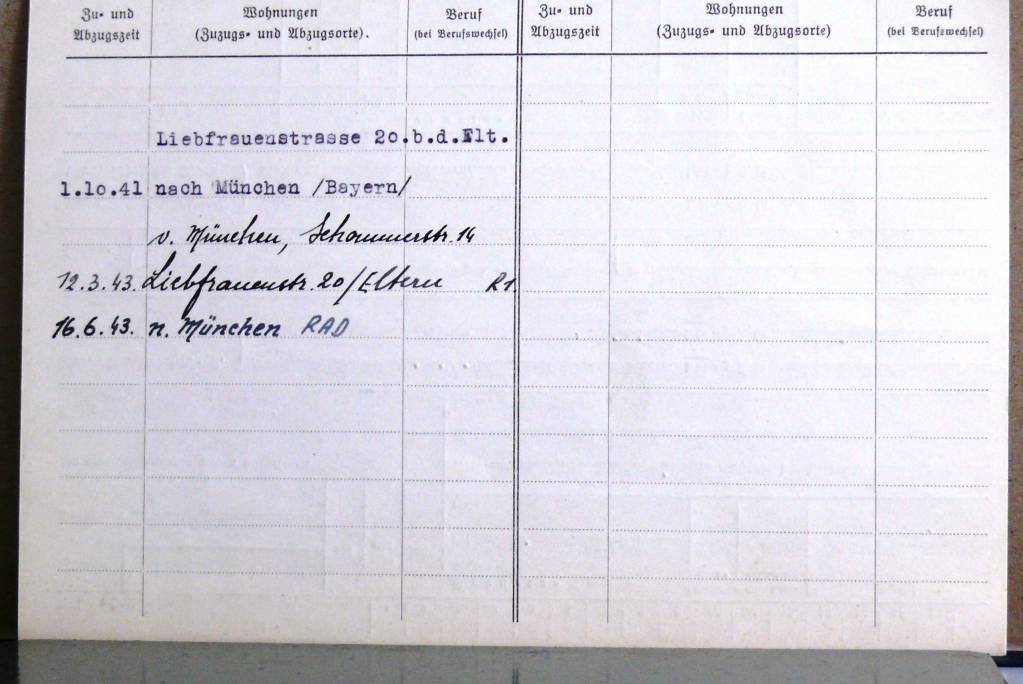 Zu- und Abzugszeit
Wohnungen (Zuzugs- und Abzugsorte).
Beruf (bei Berufswechsel)
Zu- und Abzugszeit
Wohnungen (Zuzugs- und Abzugsorte)
Beruf (bei Berufswechsel)
Liebfrauenstrasse 20.b.d.Elt.
1.10.41 nach München /Bayern/
v. München, Schommerstr. 14
12.3.43. Liebfrauenstr. 20/Eltern R1
16.6.43. n. München RAD